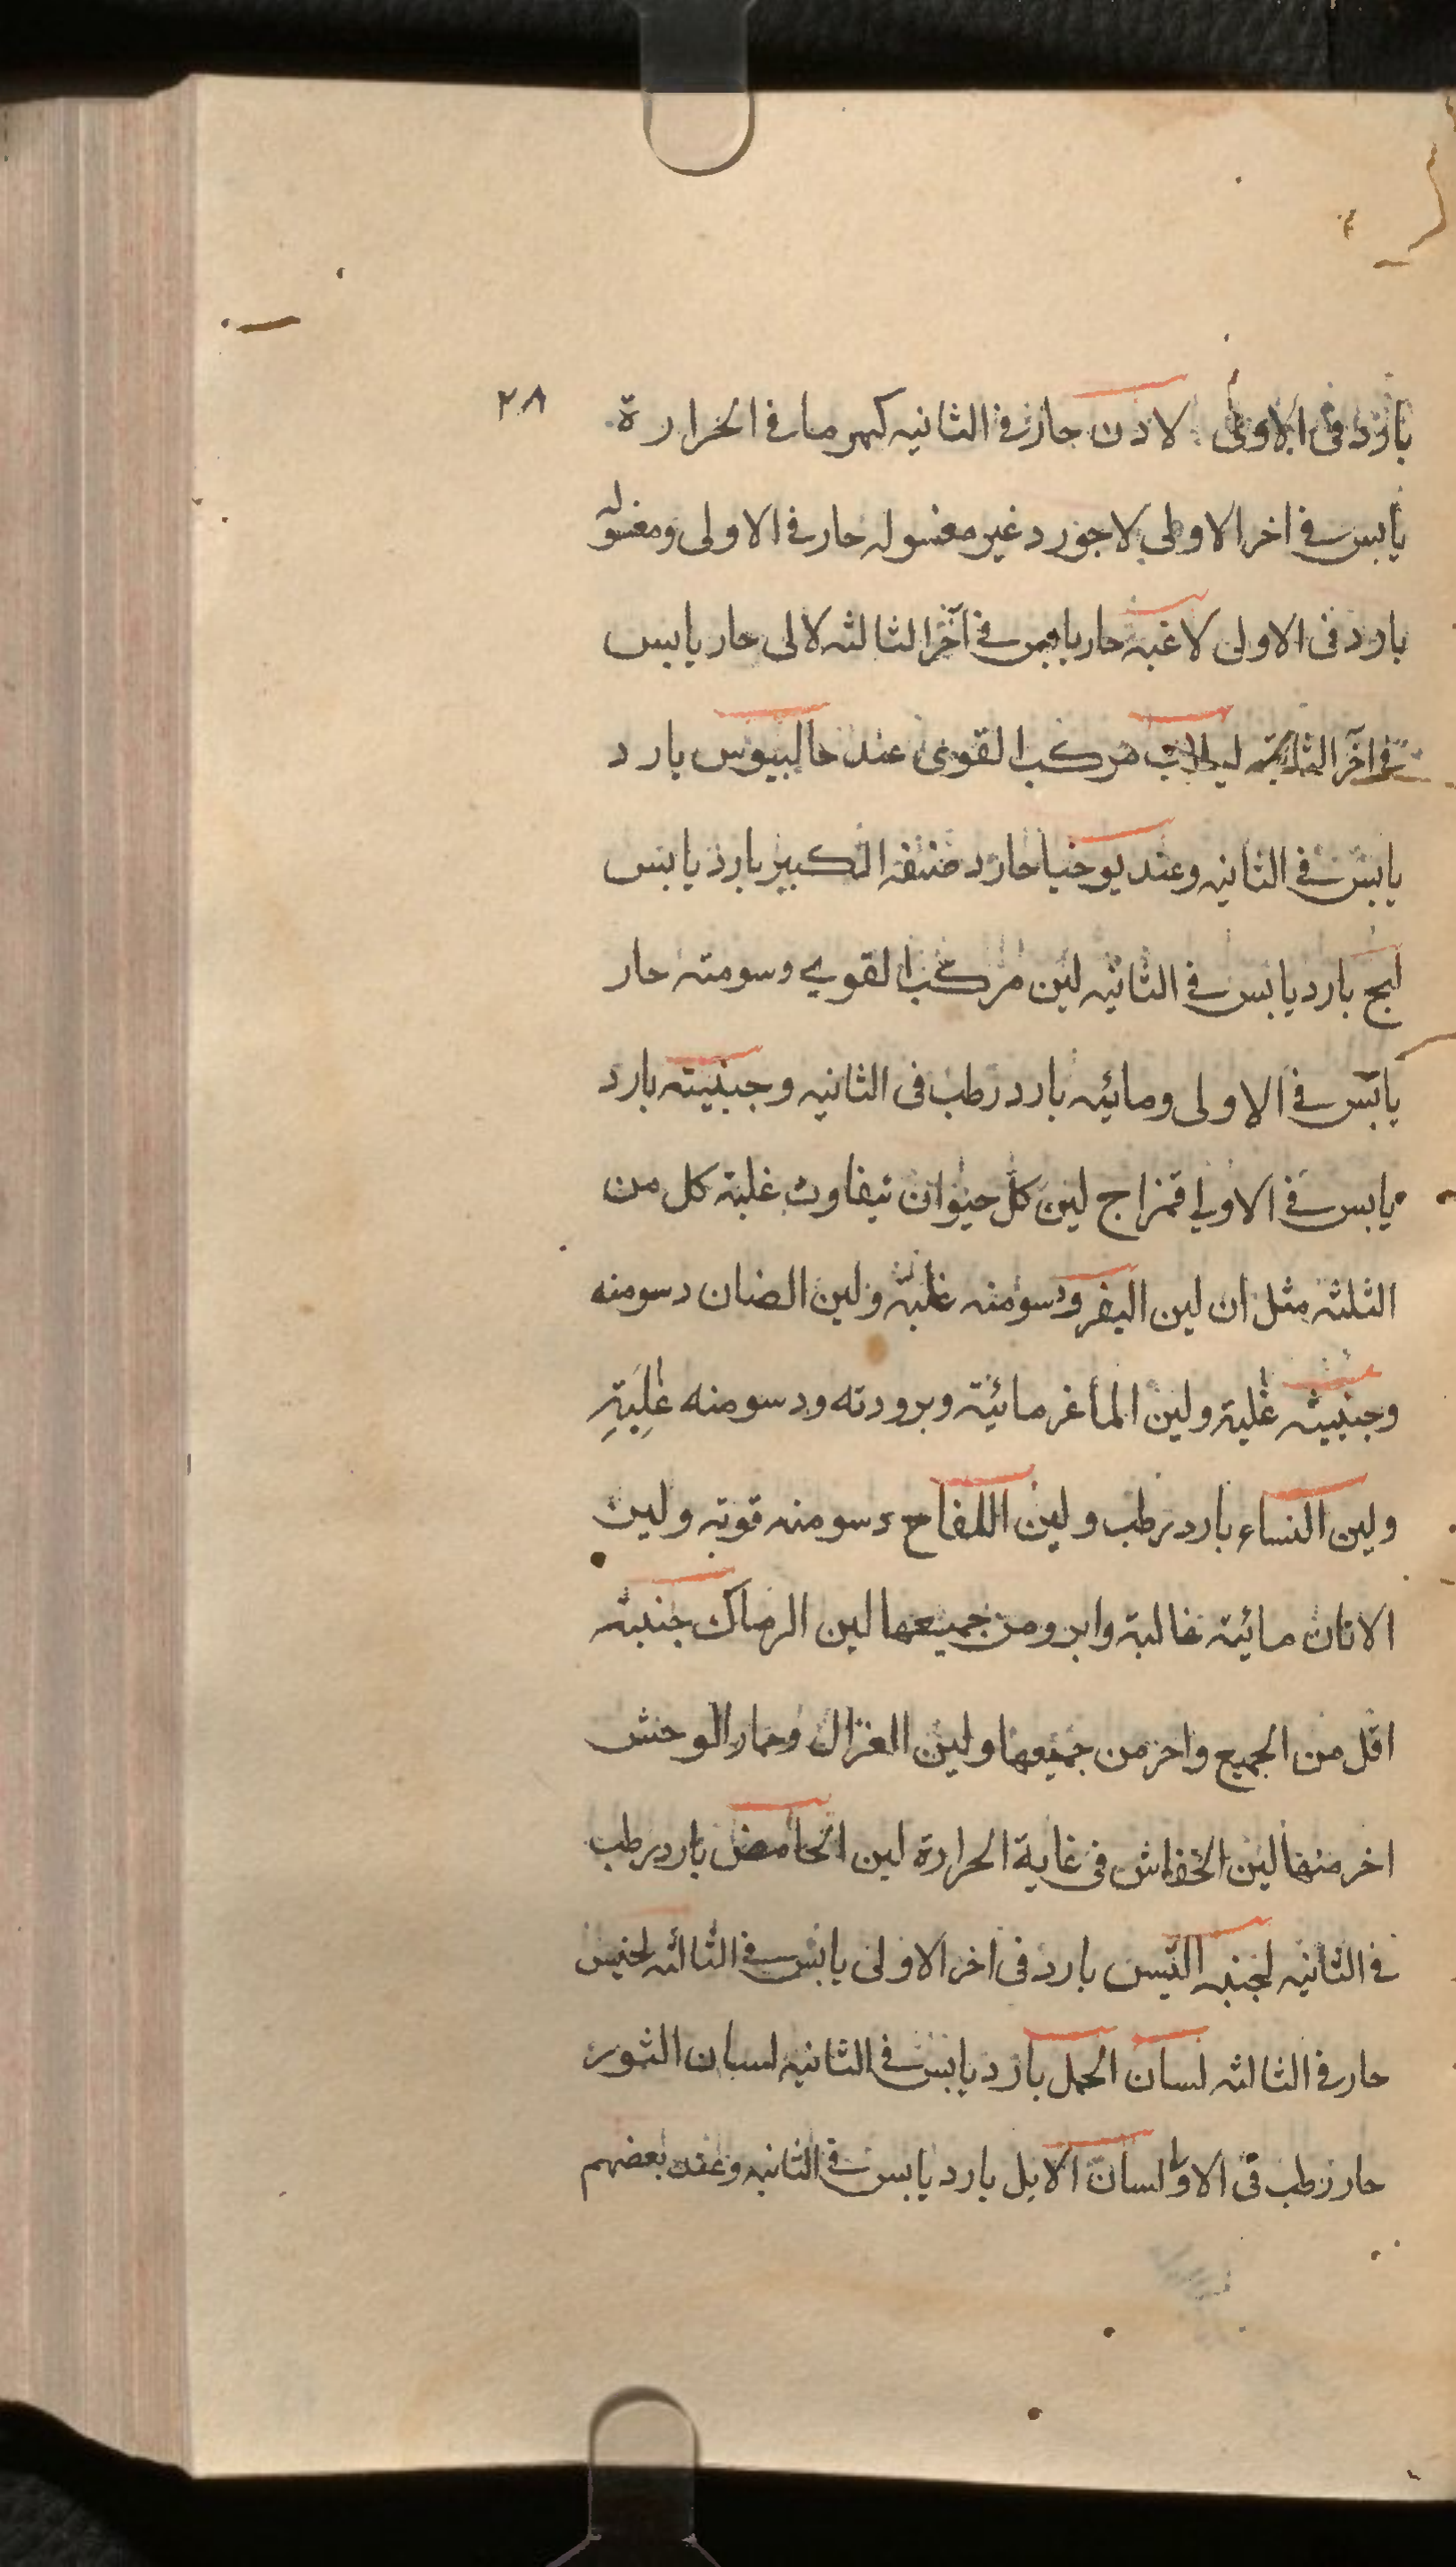 ٢٨
بارد فى الاولى لادن حار فى الثانيه كهرما فى الحرارة
يابس فى اخر الاولى لاجورد غير مغسوله حار فى الاولى ومغسوله
بارد فى الاولى لاغيه حار يابس فى آخر الثالثه لالى حار يابس
فى آخر الثانيه لبلاب مركب القوى عند جالينوس بارد
يابس فى الثانيه وعند يوحنا حار د الكبير بارد يابس
لبخ بارد يابس فى الثانيه لبن مركب القوى دسومته حار
يابس فى الاولى ومائيه بارد رطب فى الثانيه وجبنيته بارد
يابس فى الاولى فمزاج لبن كل حيوان بتفاوت غلبة كل من
الثلثه مثل ان لبن البقر ودسومته غلبة ولبن الضان دسومته
وجبنيته غلبة ولبن الماغر مائية وبرودته ودسومنه غلبة
ولبن النساء بارد رطب ولبن اللقاح دسومته قوته ولبن
الاتان مائية غالبة وابرد من جميعها لبن الرماك جبنيته
اقل من الجميع واحر من جميعها ولبن الغزال وحمار الوحش
احر منها لبن الخفاش فى غاية الحرارة لبن الحامض بارد رطب
فى الثانيه لحية التيس بارد فى اخر الاولى يابس فى الثالثه
حار فى الثالثه لسان الحمل بارد يابس فى الثانيه لسان الثور
حار رطب فى الاولى لسان الابل بارد يابس فى الثانيه وعند بعضهم